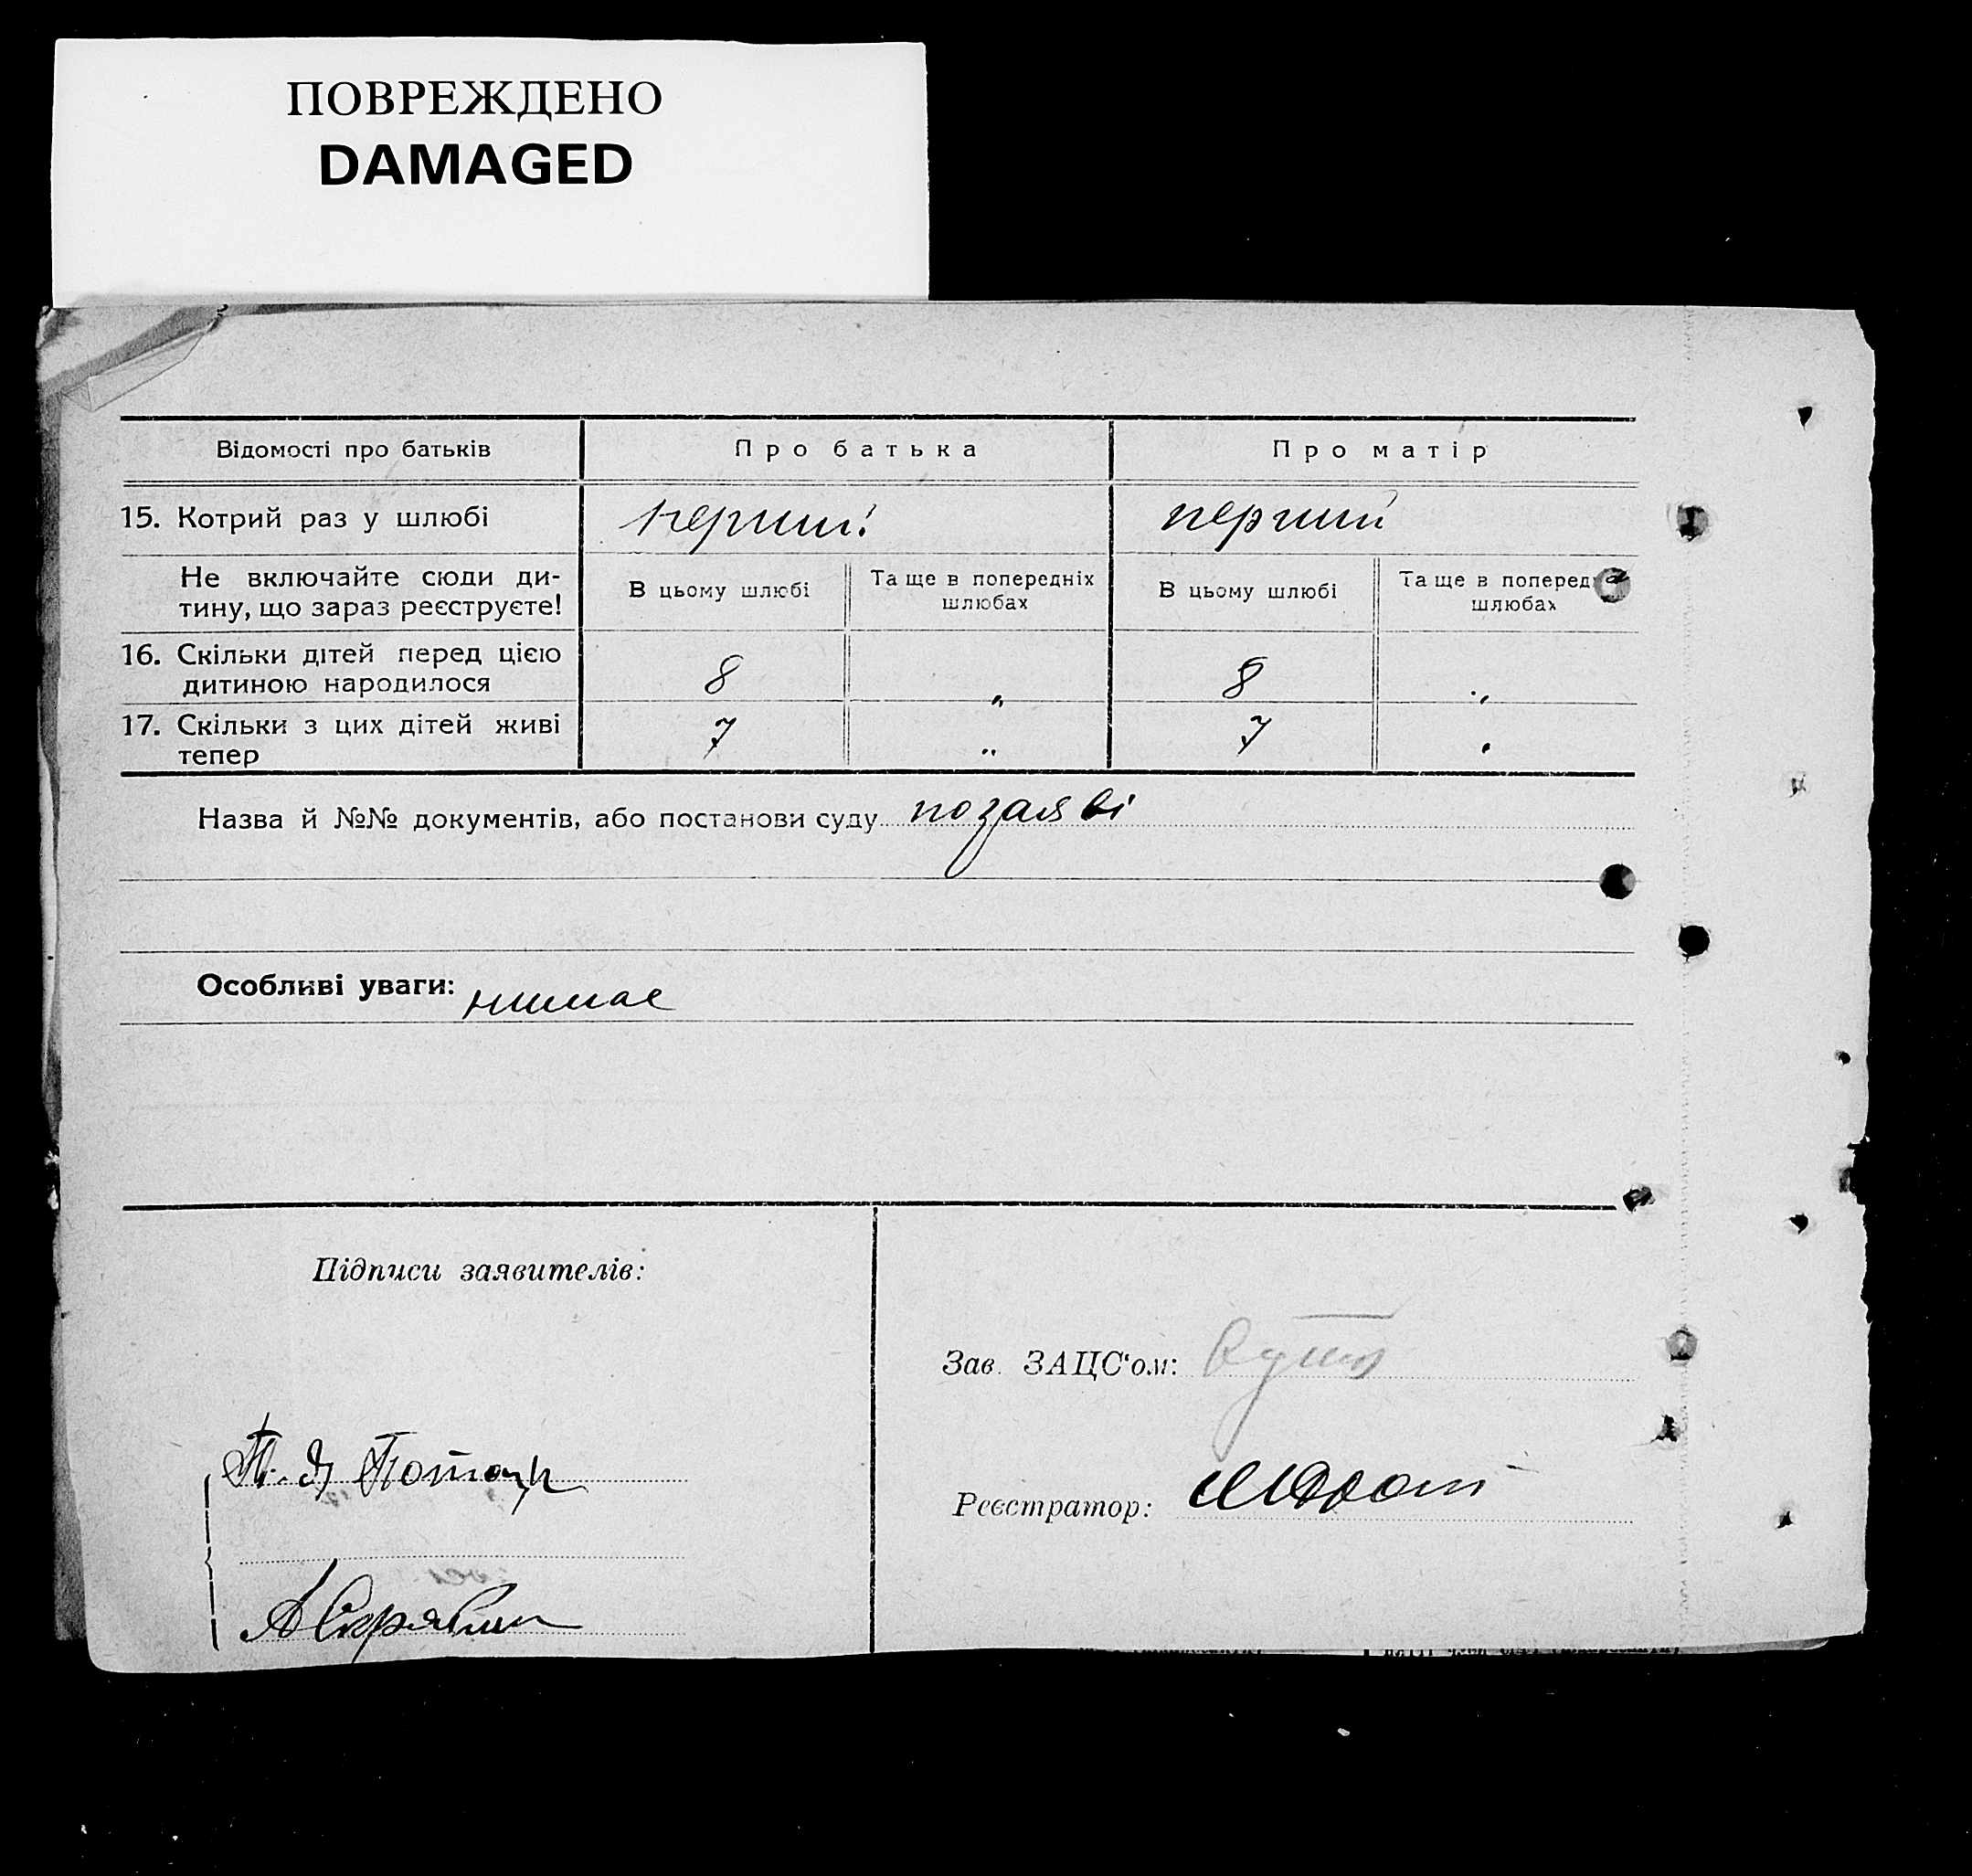 ПОВРЕЖДЕНО
DAMAGED
Відомості про батьків Про батька Про матір
15. Котрий раз у шлюбі перший перший
Не включайте сюди ди-
тину, що зараз реєструєте!
В цьому шлюбі
Та ще в попередніх
шлюбах
В цьому шлюбі
Та ще в поперед
шлюбах
16. Скільки дітей перед цією
дитиною народилося 8 „ 8 „
17. Скільки з цих дітей живі
тепер 7 „ 7
Назва й №№ документів, або постанови суду по заяві
Особливі уваги: нимае
Підписи заявителів:
Зав. ЗАЦС‘ом:
Реєстратор: